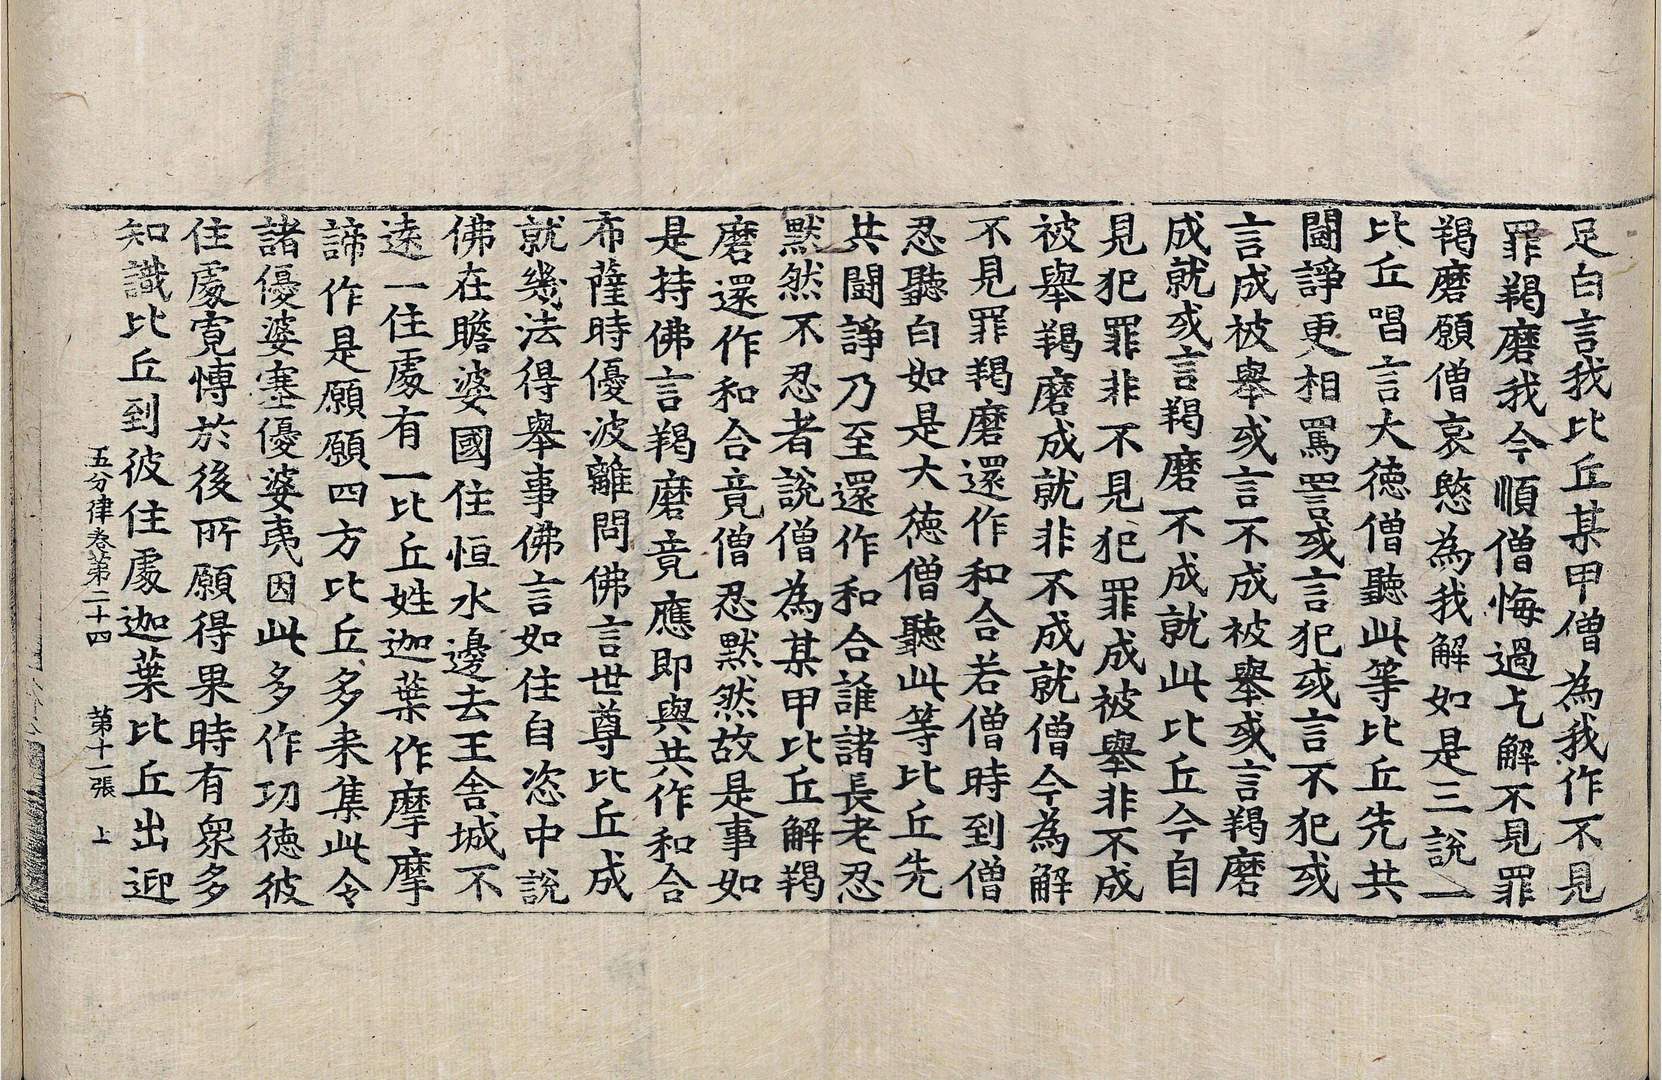 足白言我比丘某甲僧為我作不見
罪羯磨我今順僧悔過乞解不見罪
羯磨願僧哀愍為我解如是三說一
比丘唱言大德僧聽此等比丘先共
鬪諍更相罵詈或言犯或言不犯或
言成被舉或言不成被舉或言羯磨
成就或言羯磨不成就此比丘今自
見犯罪非不見犯罪成被舉非不成
被舉羯磨成就非不成就僧今為解
不見罪羯磨還作和合若僧時到僧
忍聽白如是大德僧聽此等比丘先
共鬪諍乃至還作和合誰諸長老忍
默然不忍者說僧為某甲比丘解羯
磨還作和合竟僧忍默然故是事如
是持佛言羯磨竟應即與共作和合
布薩時優波離問佛言世尊比丘成
就幾法得舉事佛言如住自恣中說
佛在瞻婆國住恒水邊去王舍城不
遠一住處有一比丘姓迦葉作摩摩
諦作是願願四方比丘多来集此令
諸優婆塞優婆夷因此多作功德彼
住處寬慱於後所願得果時有眾多
知識比丘到彼住處迦葉比丘出迎
五分律卷第二十四 第十一張 上